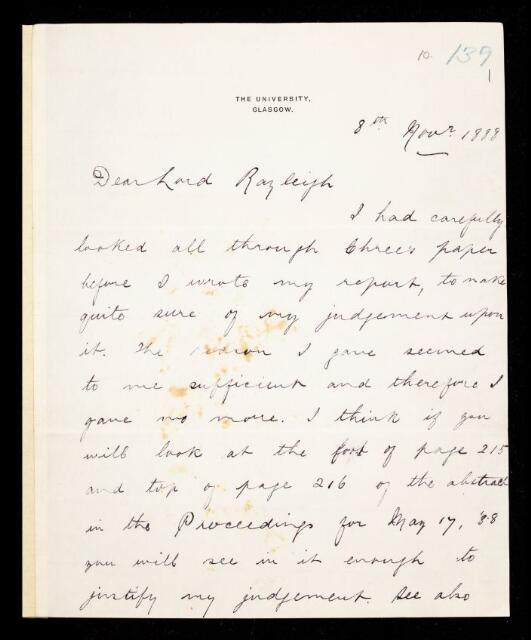 10. 139
1
THE UNIVERSITY,
GLASGOW.
8th Novr. 1888
Dear Lord Rayleigh
I had carefully
looked all through Chree's paper
before I wrote my report, to make
quite sure of my judgement upon
it. The reason I gave seemed
to me sufficient and therefore I
gave no more. I think if you
will look at the foot of page 215
and top of page 216 of the abstract
in the Proceedings for May 17, '88
you will see in it enough to
justify my judgement. See also